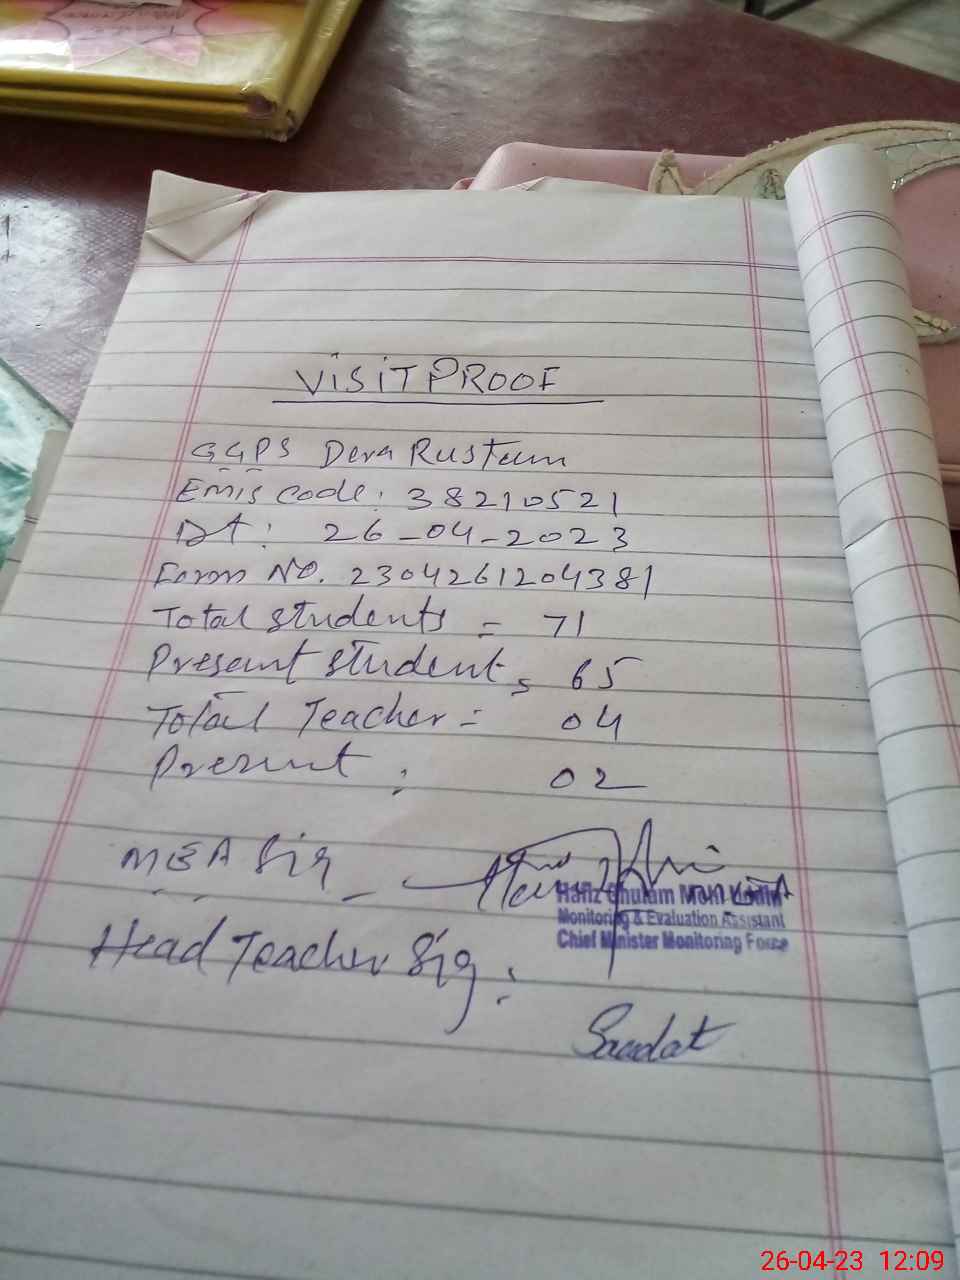 VISIT PROOF
GGPS Dera Rustam
Emis code: 38210521
Dt: 26-04-2023
Form No. 2304261204381
Total students = 71
Present students 65
Total Teacher = 04
Present : 02
MEA Sig
Hafiz Ghulam Mohi uddin
Monitoring & Evaluation Assistant
Chief Minister Monitoring Force
Head Teacher Sig :
Saadat
26-04-23 12:09